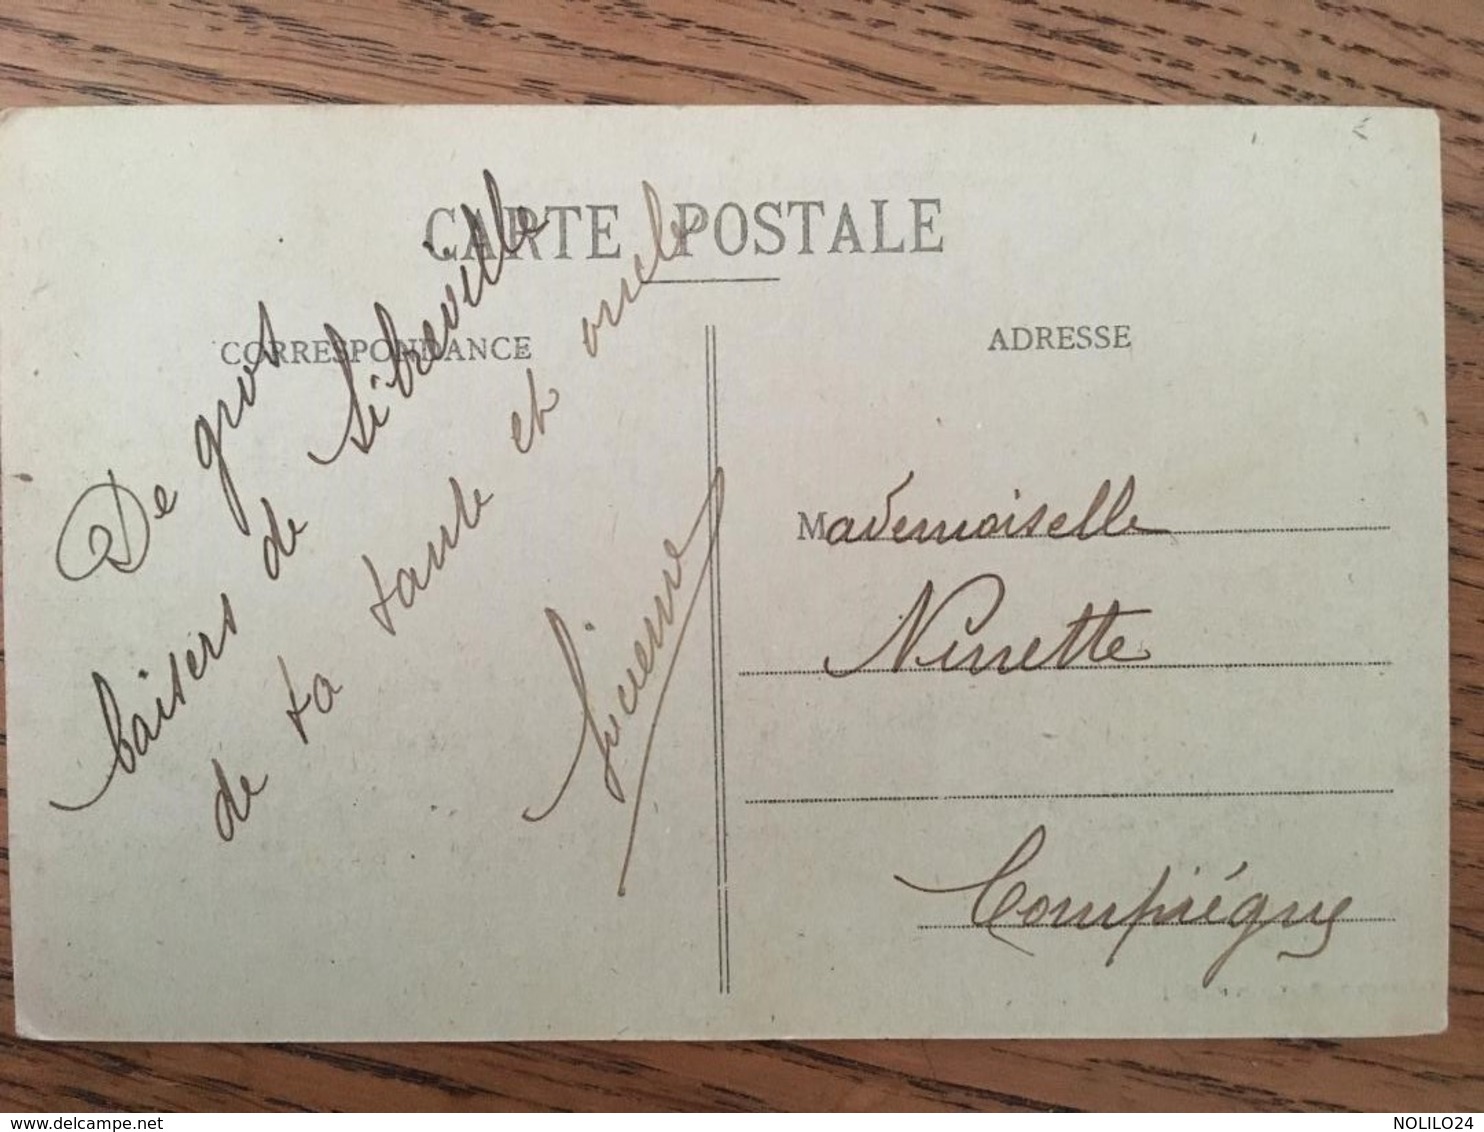 CARTE POSTALE
CORRESPONDANCE
De gros
baisers de Sibreville
de ta tante et oncle
ADRESSE
Mademoiselle
Ninette
Compiégne
delcampe.net
NOLILO24